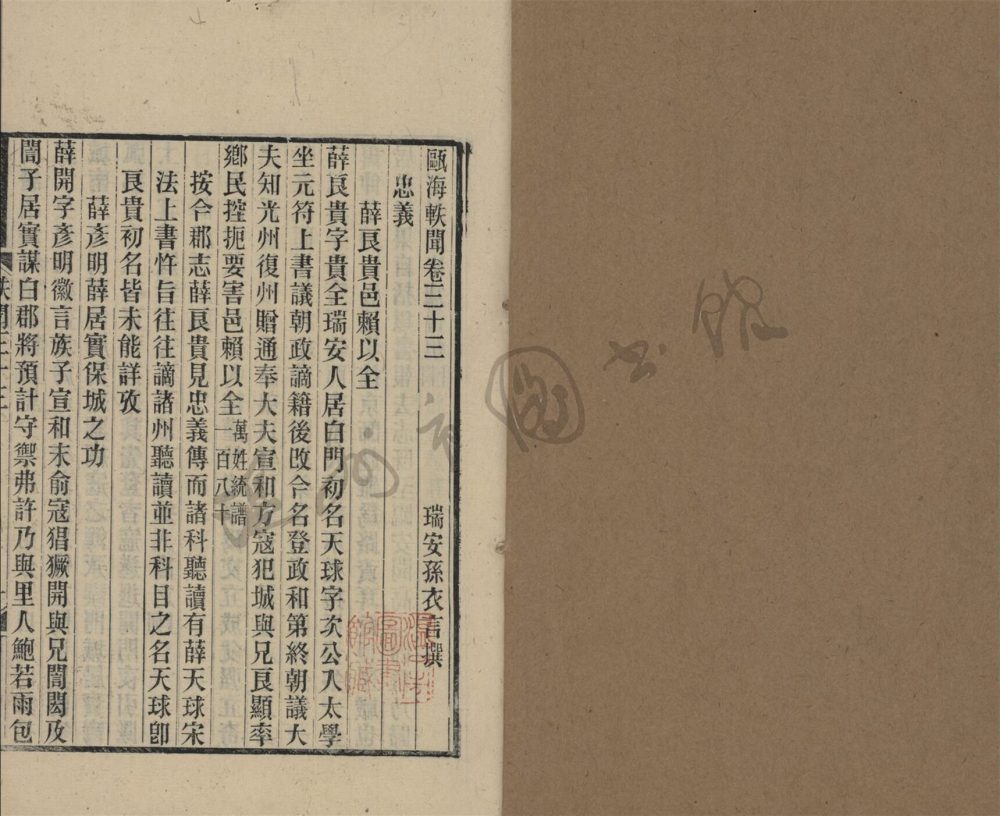 甌海軼聞卷三十三
瑞安孫衣言撰
忠義
薛良貴邑賴以全
薛良貴字貴全瑞安人居白門初名天球字次公入太學
坐元符上書議朝政謫籍後改今名登政和第終朝議大
夫知光州復州贈通奉大夫宣和方寇犯城與兄良顯率
鄉民控扼要害邑賴以全萬姓統譜一百八十
按今郡志薛良貴見忠義傳而諸科聽讀有薛天球宋
法上書忤旨往往謫諸州聽讀並非科目之名天球卽
良貴初名皆未能詳攷
薛彥明薛居實保城之功
薛開字彥明徽言族子宣和末俞寇猖獗開與兄誾閎及
誾子居實謀白郡將預計守禦弗許乃與里人鮑若雨包
軼聞三十三
圖書館